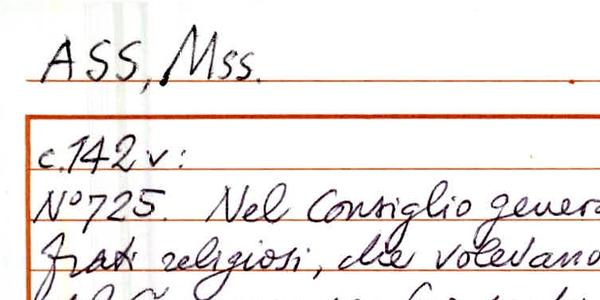 ASS, Mss.
c.142v:
N°725. Nel Consiglio genera
frati religiosi, che volevano